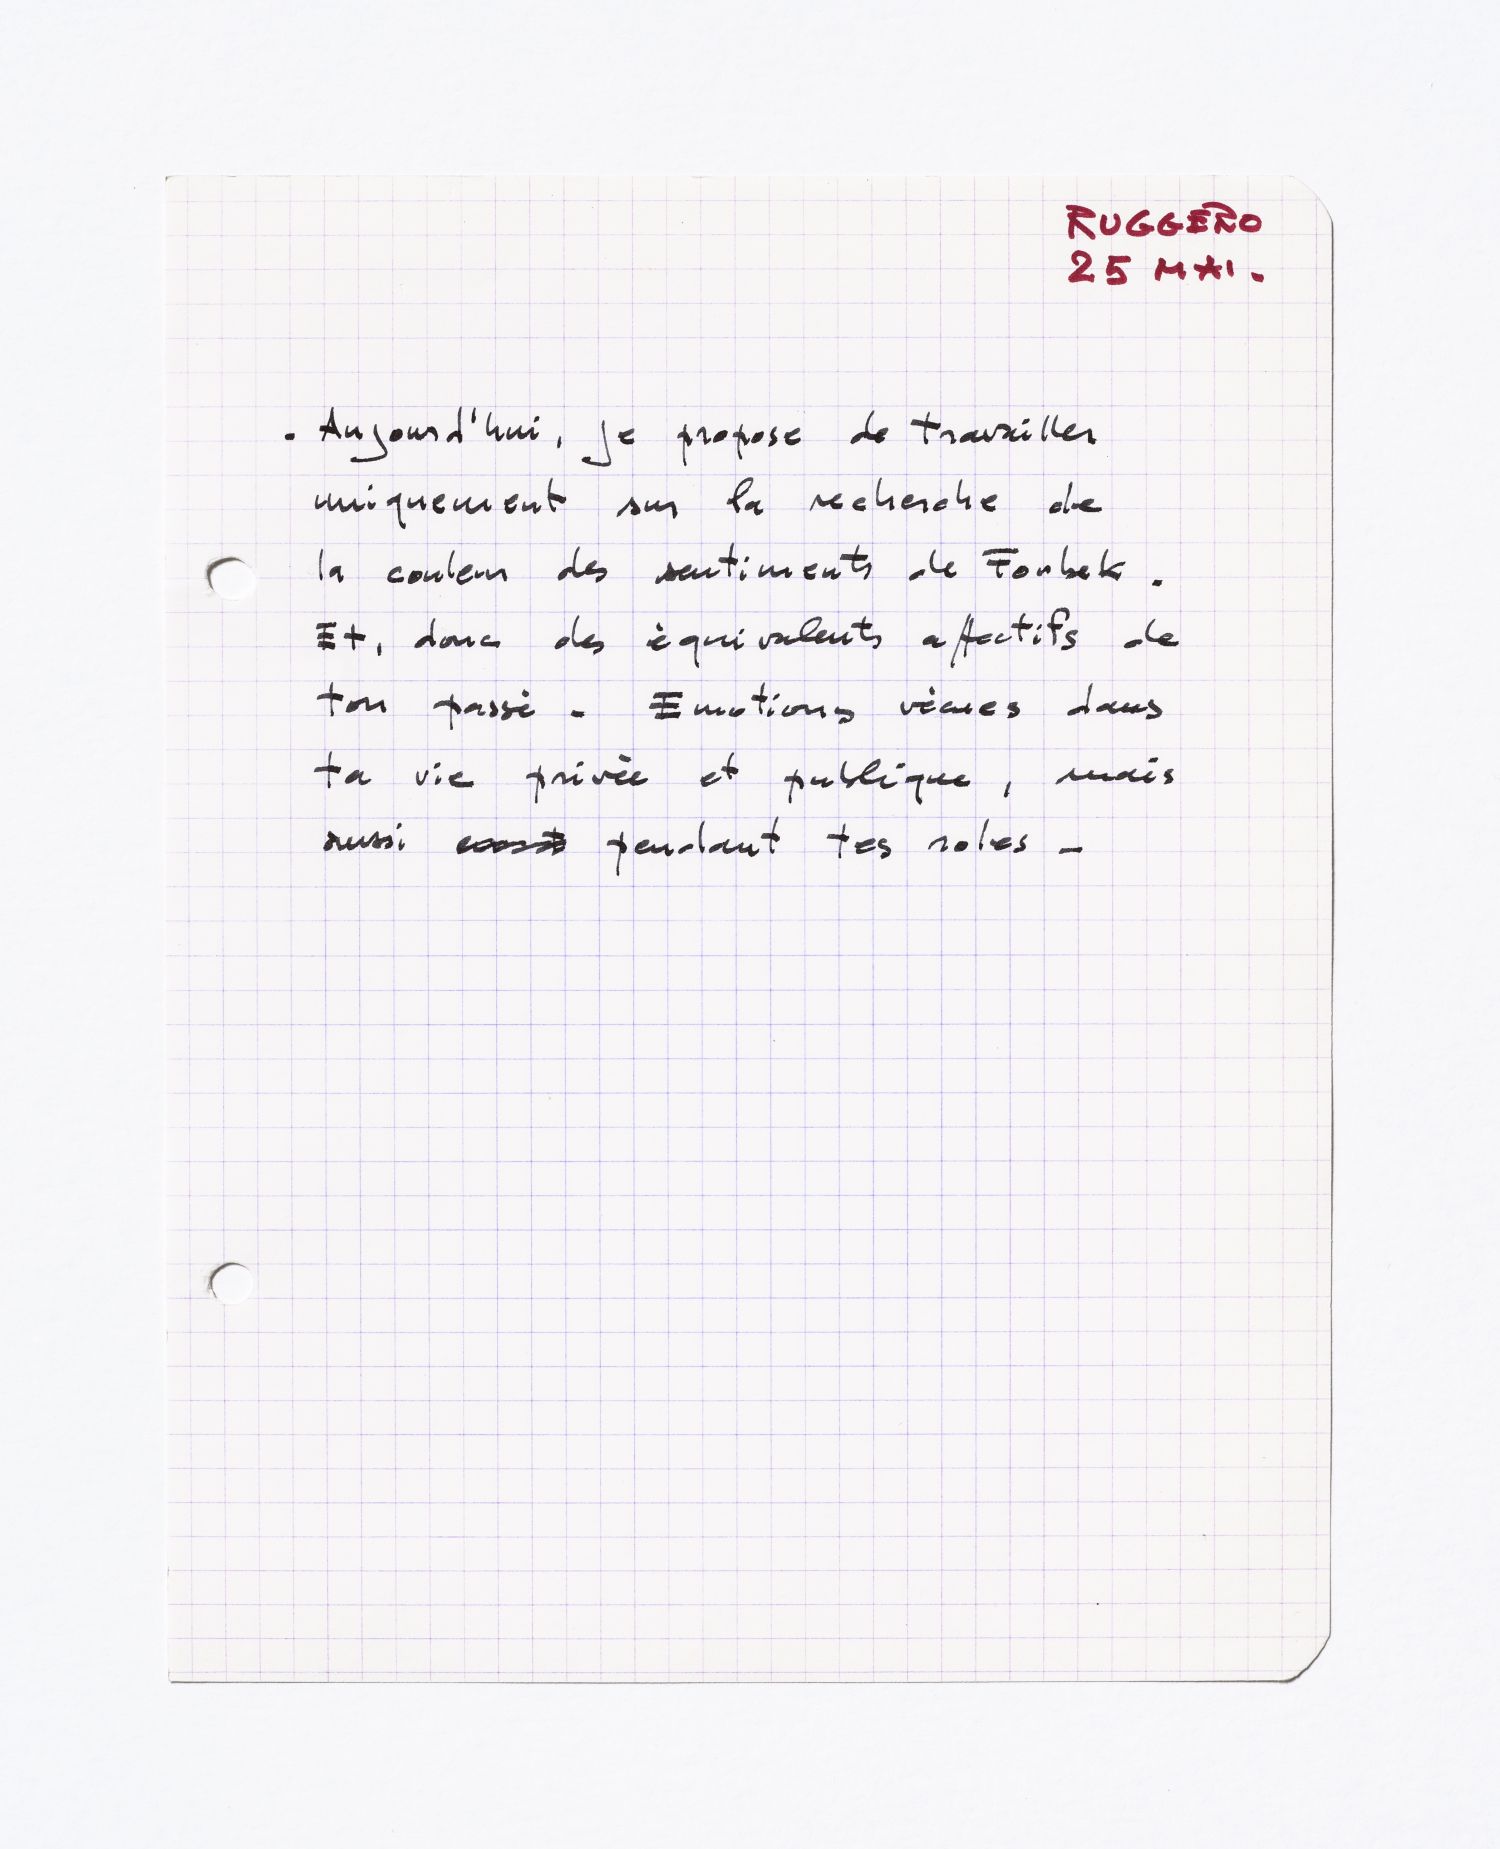 RUGGERO
25 MAI.
. Aujourd'hui, je propose de travailler
uniquement sur la recherche de
la couleur des sentiments de Forbek.
Et, donc des èquivalents affectifs de
ton passè - Emotions vècues dans
ta vie privèe et publique, mais
aussi pendant tes roles -